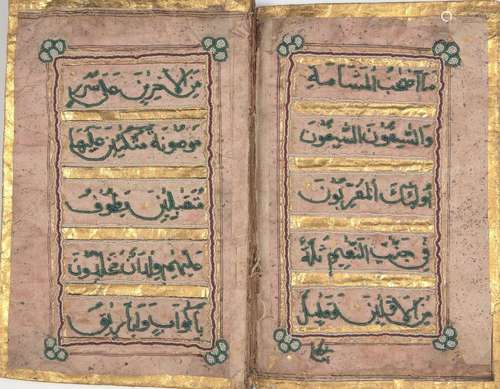 ما أصحب المشامة
والسبقون السبقون
أولئك المقربون
في جنت النعيم ثلة
من الأولين وقليل
من الآخرين على سرر
موضونة متكئين عليها
متقبلين يطوف
عليهم ولدان مخلدون
بأكواب وأباريق